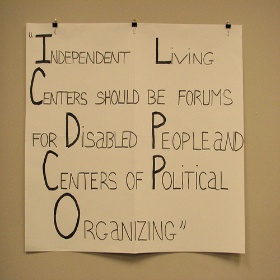 "INDEPENDENT LIVING
CENTERS SHOULD BE FORUMS
FOR DISABLED PEOPLE AND
CENTERS OF POLITICAL
ORGANIZING"